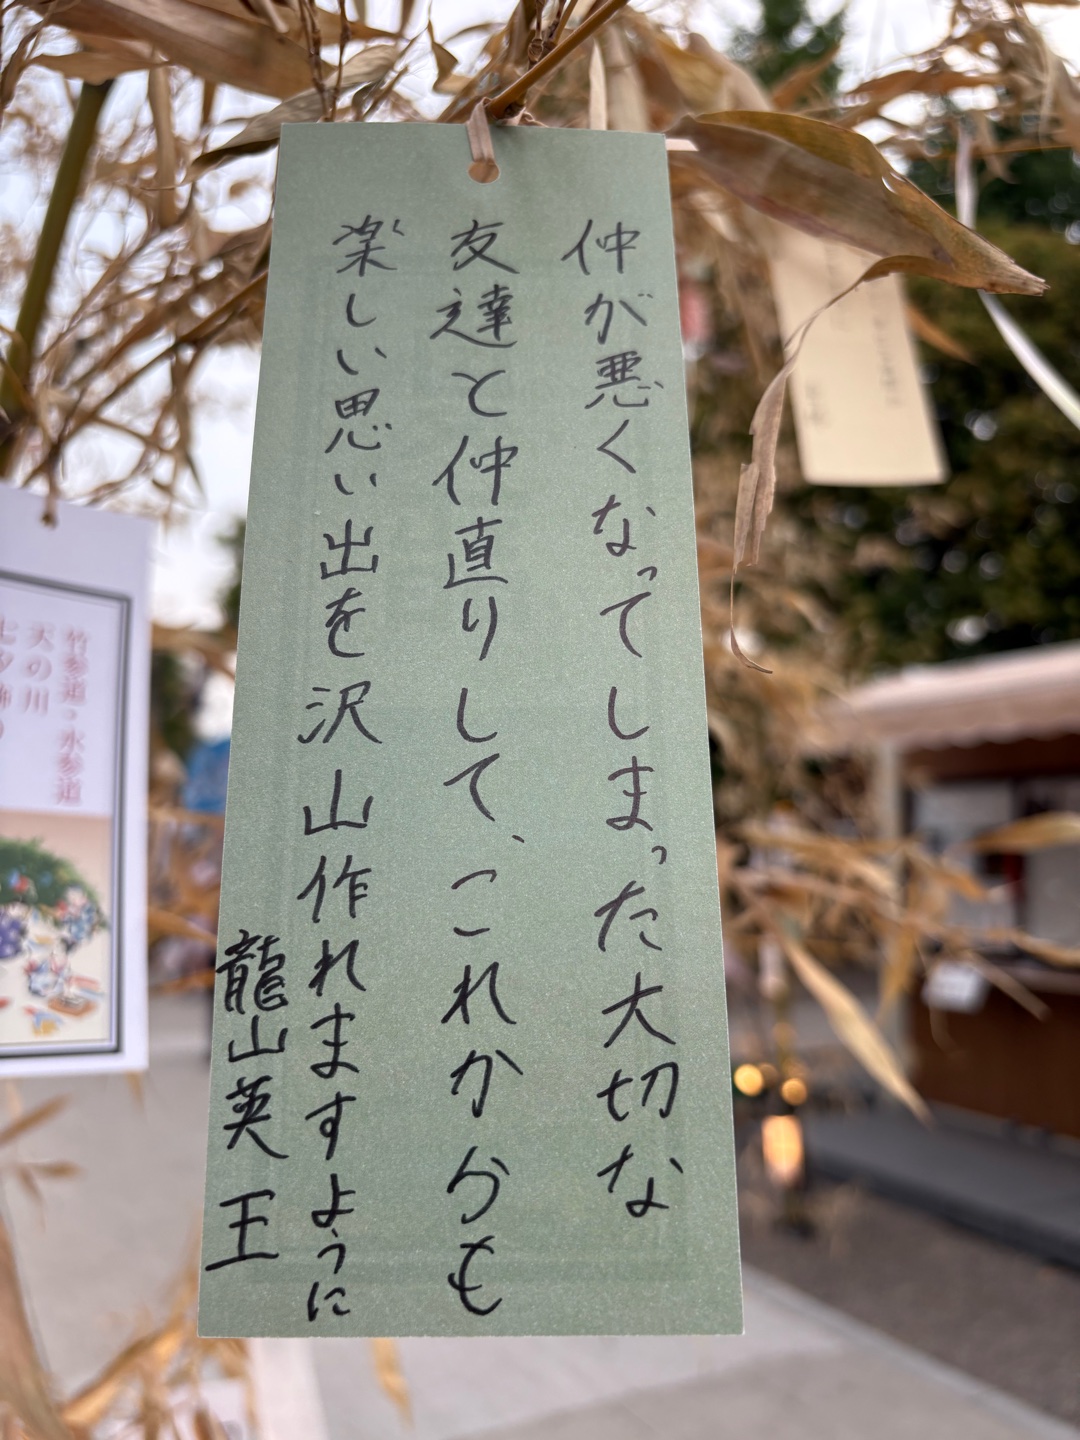 仲が悪くなってしまった大切な
友達と仲直りして、これからも
楽しい思い出を沢山作れますように
龍山英王
竹参道・水参道
天の川
七夕飾り